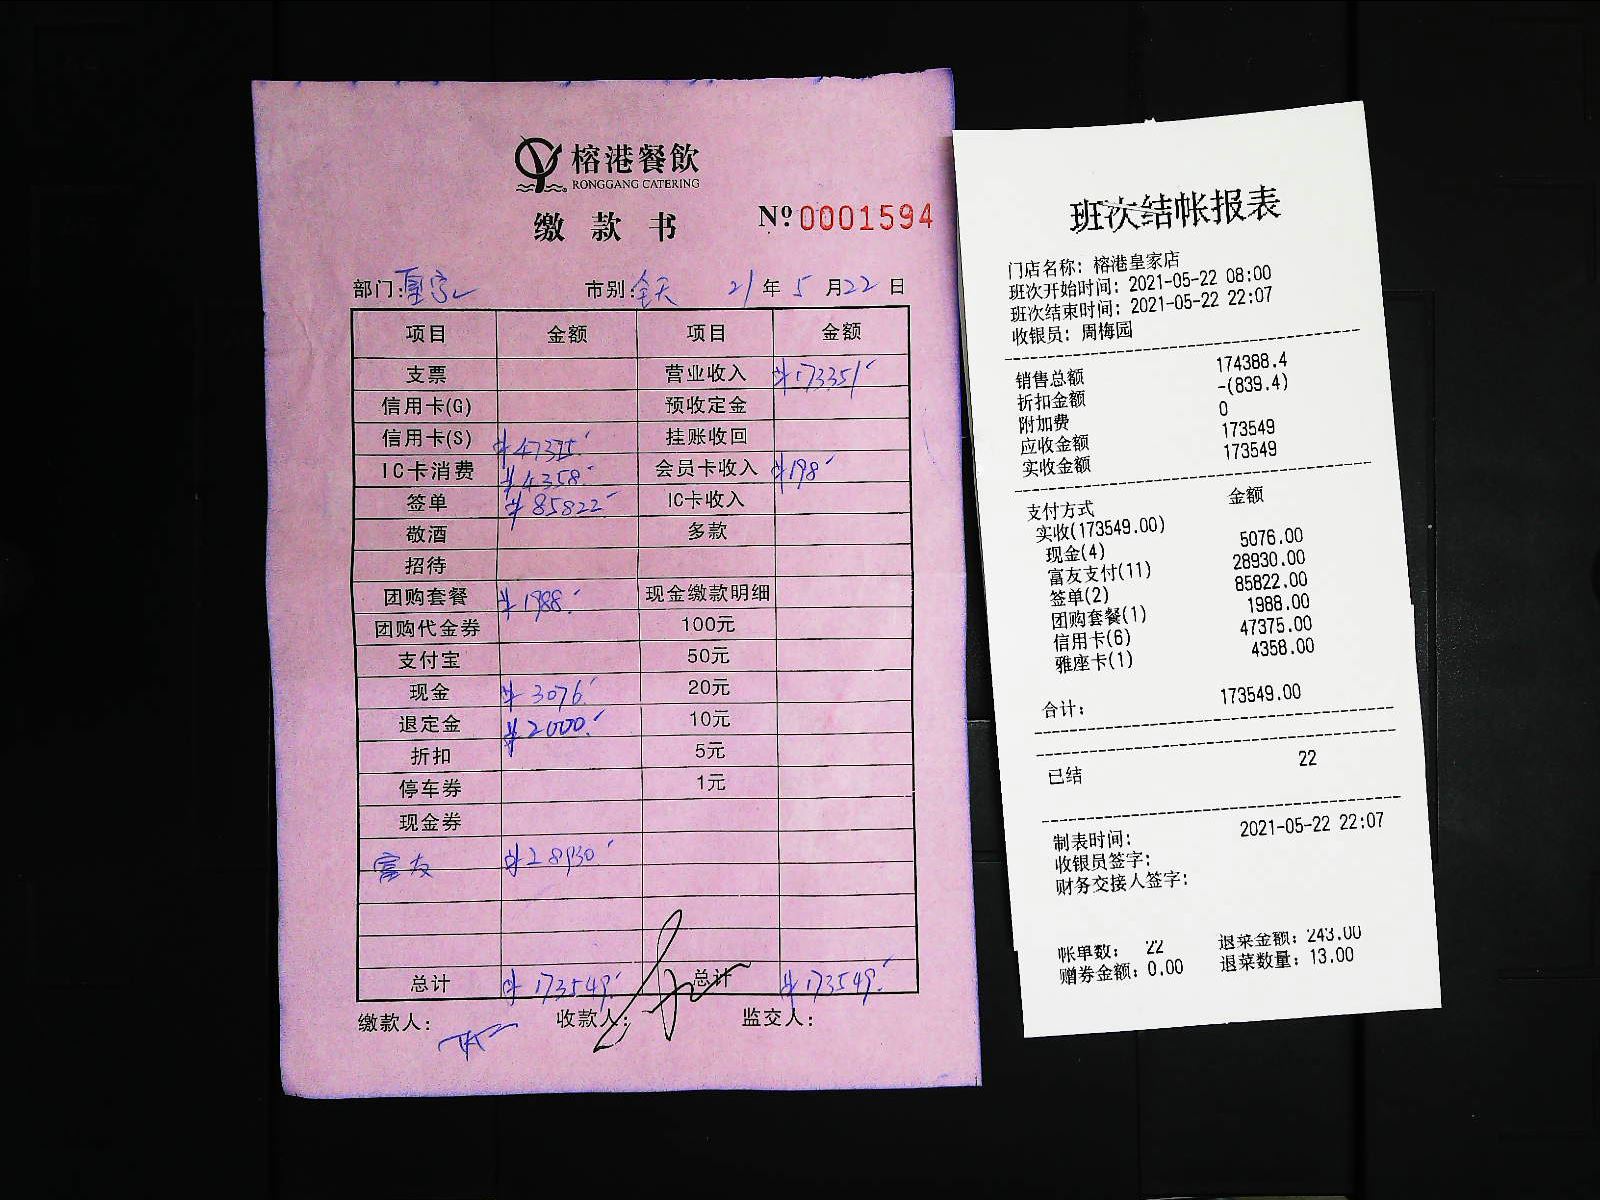 榕港餐飲
RONGGANG CATERING
缴款书 Nº 0001594
部门:皇家 市别:全天 21年5月22日
项目 金额 项目 金额
支票 营业收入 ¥173351
信用卡(G) 预收定金
信用卡(S) ¥47375 挂账收回
IC卡消费 ¥4358 会员卡收入 ¥198
签单 ¥85822 IC卡收入
敬酒 多款
招待
团购套餐 ¥1988 现金缴款明细
团购代金券 100元
支付宝 50元
现金 ¥3076 20元
退定金 ¥2000 10元
折扣 5元
停车券 1元
现金券
富友 ¥28930
总计 ¥173549 总计 ¥173549
缴款人: 收款人: 监交人:
班次结帐报表
门店名称: 榕港皇家店
班次开始时间: 2021-05-22 08:00
班次结束时间: 2021-05-22 22:07
收银员: 周梅园
销售总额 174388.4
折扣金额 -(839.4)
附加费 0
应收金额 173549
实收金额 173549
支付方式 金额
实收(173549.00)
现金(4) 5076.00
富友支付(11) 28930.00
签单(2) 85822.00
团购套餐(1) 1988.00
信用卡(6) 47375.00
雅座卡(1) 4358.00
合计: 173549.00
已结 22
制表时间: 2021-05-22 22:07
收银员签字:
财务交接人签字:
帐单数: 22 退菜金额: 243.00
赠券金额: 0.00 退菜数量: 13.00